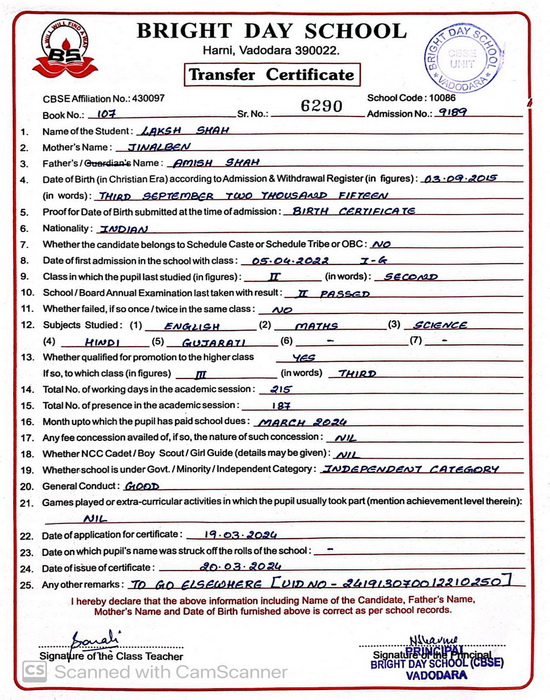 A WILL WILL FIND A WAY
BS
BRIGHT DAY SCHOOL
Harni, Vadodara 390022.
BRIGHT DAY SCHOOL
CBSE
UNIT
VADODARA
Transfer Certificate
CBSE Affiliation No.: 430097 School Code : 10086
Book No.: 107 Sr. No.: 6290 Admission No.: 9189
1. Name of the Student : LAKSH SHAH
2. Mother's Name : JINALBEN
3. Father's / Guardian's Name : AMISH SHAH
4. Date of Birth (in Christian Era) according to Admission & Withdrawal Register (in figures) : 03-09-2015
(in words) : THIRD SEPTEMBER TWO THOUSAND FIFTEEN
5. Proof for Date of Birth submitted at the time of admission : BIRTH CERTIFICATE
6. Nationality : INDIAN
7. Whether the candidate belongs to Schedule Caste or Schedule Tribe or OBC : NO
8. Date of first admission in the school with class : 05-04-2022 I-G
9. Class in which the pupil last studied (in figures) : II (in words) : SECOND
10. School / Board Annual Examination last taken with result : II PASSED
11. Whether failed, if so once / twice in the same class : NO
12. Subjects Studied : (1) ENGLISH (2) MATHS (3) SCIENCE
(4) HINDI (5) GUJARATI (6) - (7) -
13. Whether qualified for promotion to the higher class YES
If so, to which class (in figures) III (in words) THIRD
14. Total No. of working days in the academic session : 215
15. Total No. of presence in the academic session : 187
16. Month upto which the pupil has paid school dues : MARCH 2024
17. Any fee concession availed of, if so, the nature of such concession : NIL
18. Whether NCC Cadet / Boy Scout / Girl Guide (details may be given) : NIL
19. Whether school is under Govt. / Minority / Independent Category : INDEPENDENT CATEGORY
20. General Conduct : GOOD
21. Games played or extra-curricular activities in which the pupil usually took part (mention achievement level therein) :
NIL
22. Date of application for certificate : 19-03-2024
23. Date on which pupil's name was struck off the rolls of the school : -
24. Date of issue of certificate : 20-03-2024
25. Any other remarks : TO GO ELSEWHERE [UID NO - 241913070012210250]
I hereby declare that the above information including Name of the Candidate, Father's Name,
Mother's Name and Date of Birth furnished above is correct as per school records.
Signature of the Class Teacher Signature of the Principal
PRINCIPAL
BRIGHT DAY SCHOOL (CBSE)
VADODARA
CS Scanned with CamScanner